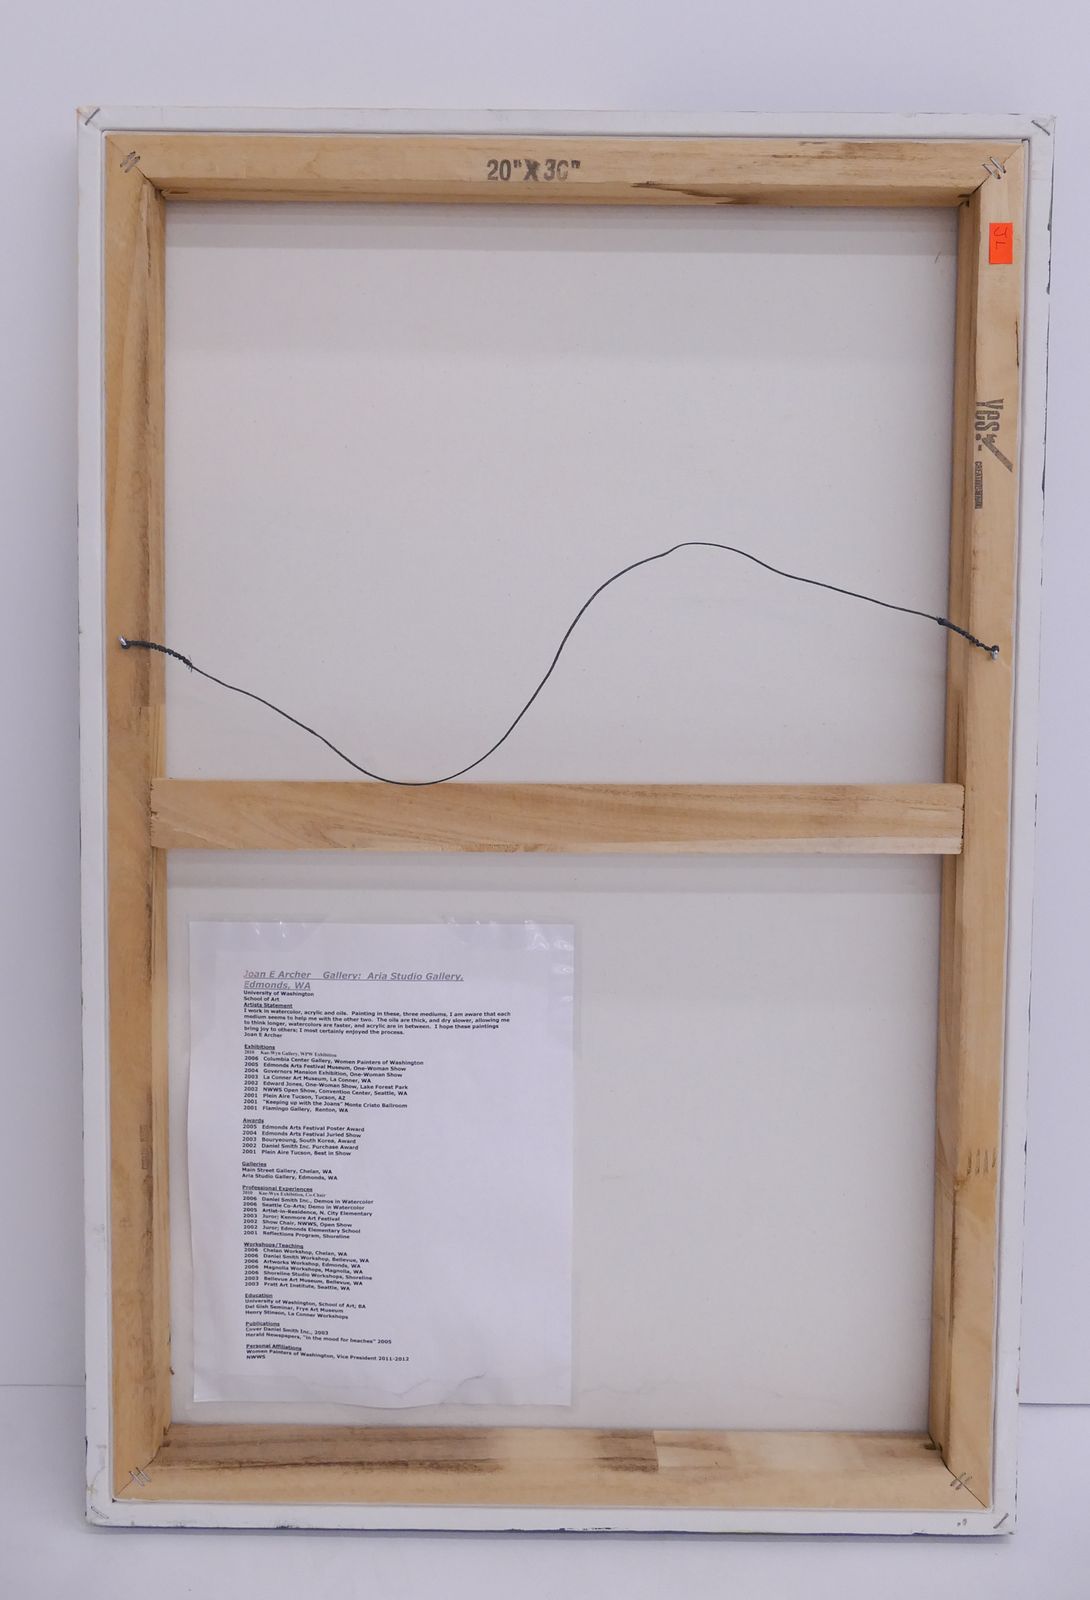 20"X30"
YES!
Joan E Archer Gallery: Aria Studio Gallery,
Edmonds, WA
University of Washington
School of Art
Artists Statement
I work in watercolor, acrylic and oils. Painting in these, three mediums, I am aware that each
medium seems to help me with the other two. The oils are thick, and dry slower, allowing me
to think longer, watercolors are faster, and acrylic are in between. I hope these paintings
bring joy to others; I most certainly enjoyed the process.
Joan E Archer
Exhibitions
2010 Kae-Wyn Gallery, WPW Exhibition
2006 Columbia Center Gallery, Women Painters of Washington
2005 Edmonds Arts Festival Museum, One-Woman Show
2004 Governors Mansion Exhibition, One-Woman Show
2003 La Conner Art Museum, La Conner, WA
2002 Edward Jones, One-Woman Show, Lake Forest Park
2002 NWWS Open Show, Convention Center, Seattle, WA
2001 Plein Aire Tucson, Tucson, AZ
2001 "Keeping up with the Joans" Monte Cristo Ballroom
2001 Flamingo Gallery, Renton, WA
Awards
2005 Edmonds Arts Festival Poster Award
2004 Edmonds Arts Festival Juried Show
2003 Bouryeoung, South Korea, Award
2002 Daniel Smith Inc. Purchase Award
2001 Plein Aire Tucson, Best in Show
Galleries
Main Street Gallery, Chelan, WA
Aria Studio Gallery, Edmonds, WA
Professional Experiences
2010 Kae-Wyn Exhibition, Co-Chair
2006 Daniel Smith Inc., Demos in Watercolor
2006 Seattle Co-Arts; Demo in Watercolor
2005 Artist-in-Residence, N. City Elementary
2003 Juror; Kenmore Art Festival
2002 Show Chair, NWWS, Open Show
2002 Juror; Edmonds Elementary School
2001 Reflections Program, Shoreline
Workshops/Teaching
2006 Chelan Workshop, Chelan, WA
2006 Daniel Smith Workshop, Bellevue, WA
2006 Artworks Workshop, Edmonds, WA
2006 Magnolia Workshops, Magnolia, WA
2006 Shoreline Studio Workshops, Shoreline
2003 Bellevue Art Museum, Bellevue, WA
2003 Pratt Art Institute, Seattle, WA
Education
University of Washington, School of Art; BA
Del Gish Seminar, Frye Art Museum
Henry Stinson, La Conner Workshops
Publications
Cover Daniel Smith Inc., 2003
Herald Newspapers, "In the mood for beaches" 2005
Personal Affiliations
Women Painters of Washington, Vice President 2011-2012
NWWS